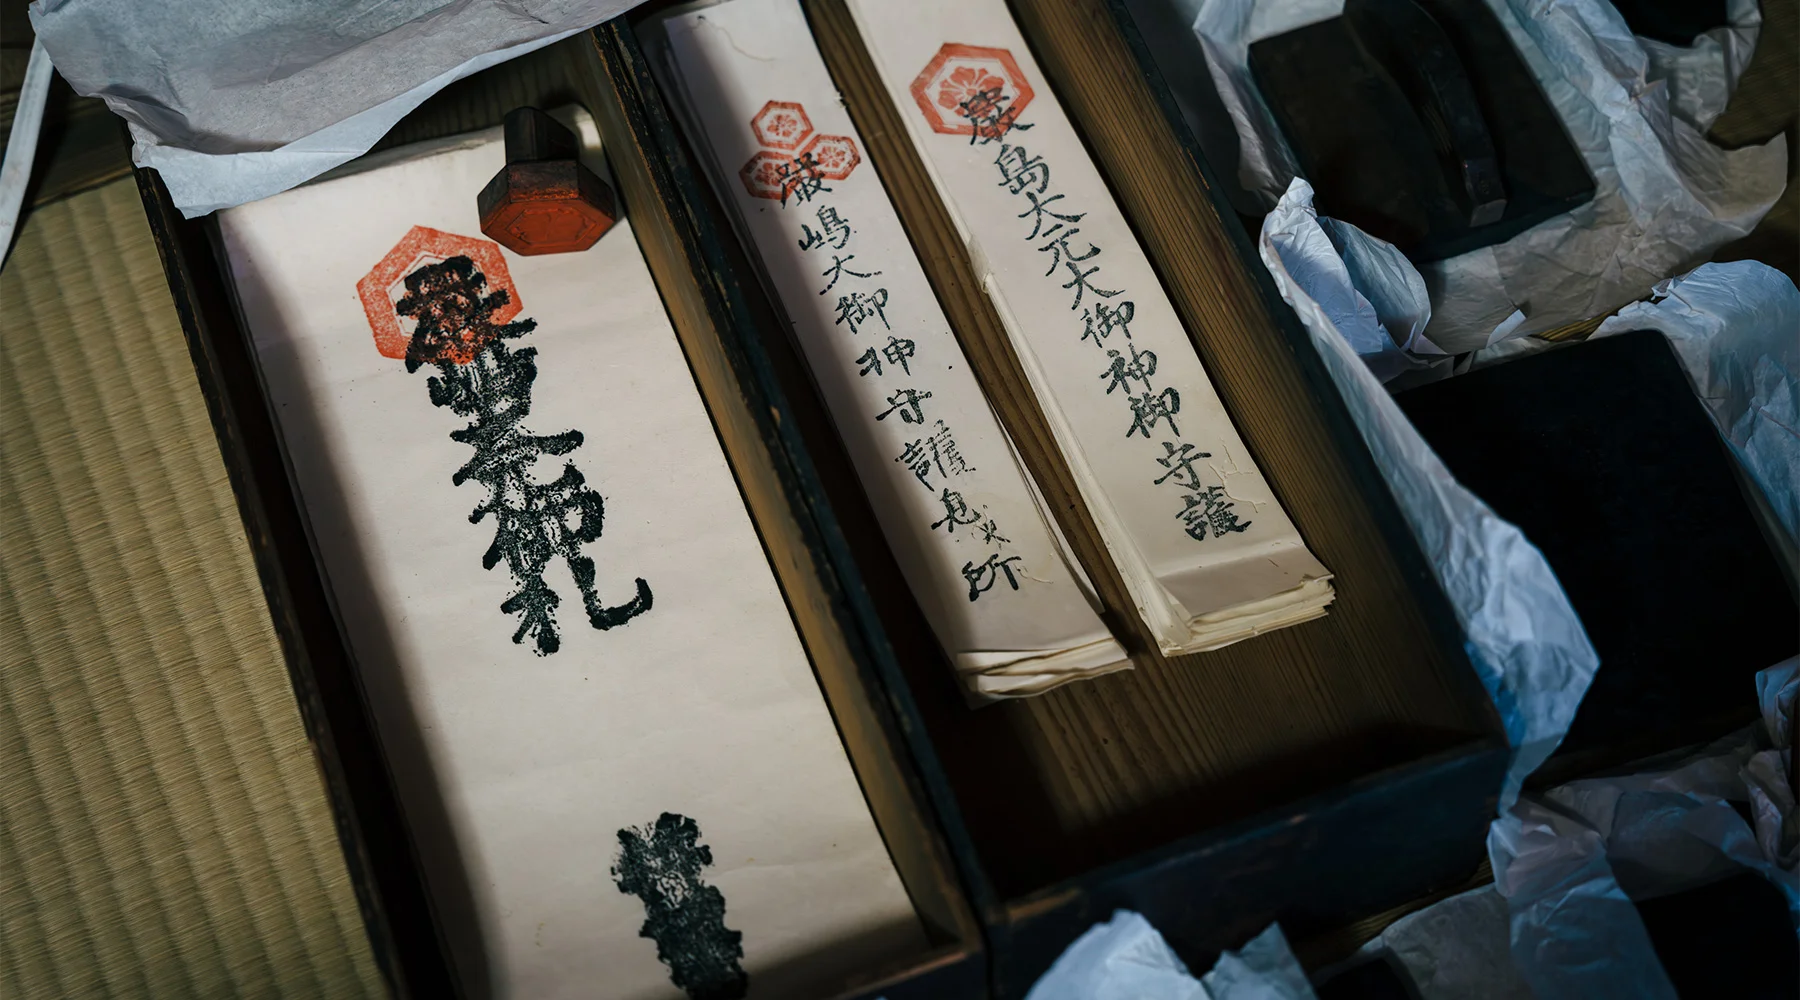 嚴島大元大御神御守護
嚴嶋大御神守護息災所
御札